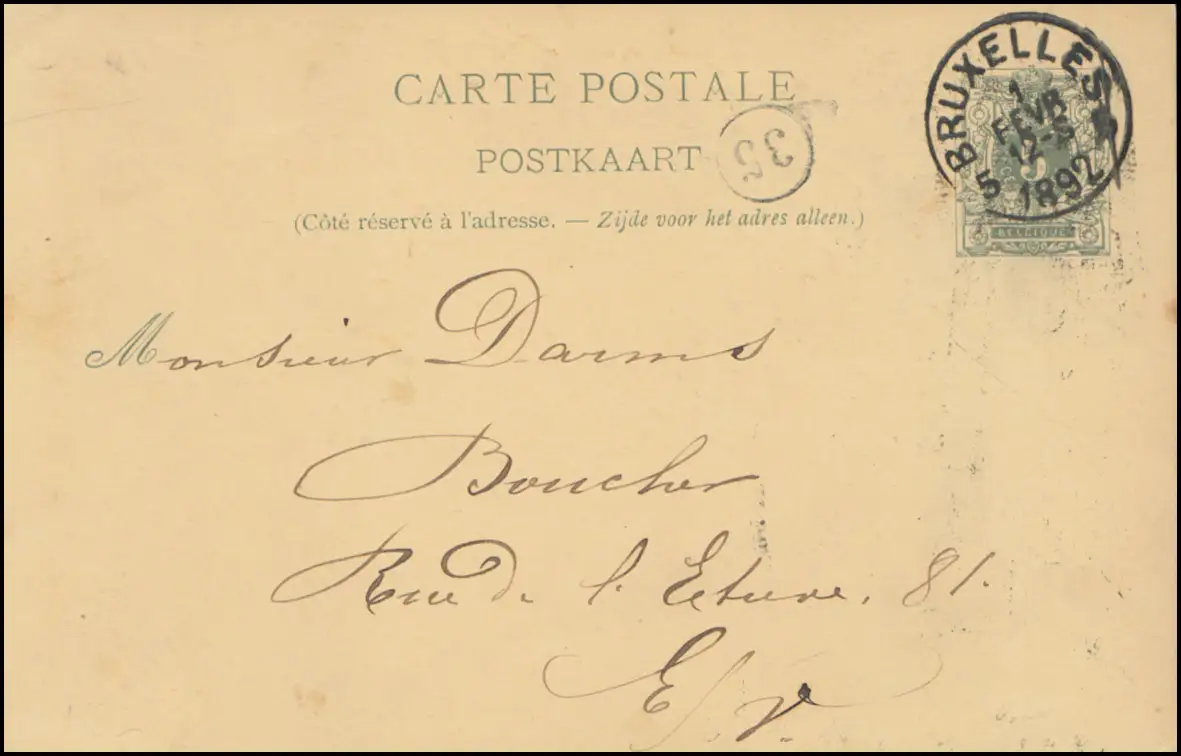 CARTE POSTALE
POSTKAART
(Côté réservé à l'adresse. — Zijde voor het adres alleen.)
35
BRUXELLES
1
FEVR
12-
5 1892
5
BELGIQUE
Monsieur Darms
Boucher
Rue de l'Etuve, 81.
E/V